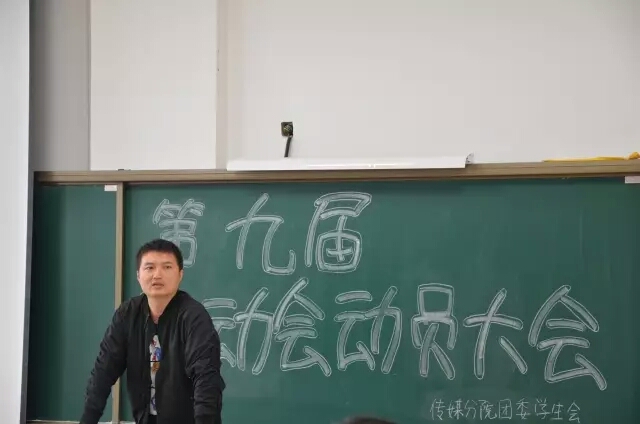 第九届
动会动员大会
传媒分院团委学生会